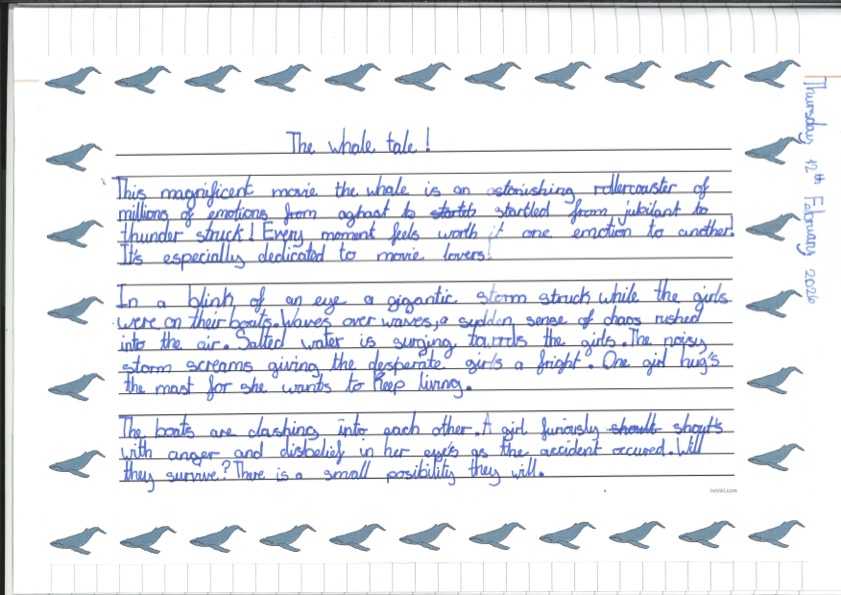 Thursday 12th February 2026
The whale tale!
This magnificent movie the whale is an astonishing rollercouster of
millions of emotions from aghast to startels startled from jubilant to
thunder struck! Every moment feels worth it one emotion to another.
It's especially dedicated to movie lovers!
In a blink of an eye a gigantic storm struck while the girls
were on their boats. Waves over waves, a sudden sense of chaos rushed
into the air. Salted water is surging towrds the girls. The noisy
storm screams giving the desperate girls a fright. One girl hug's
the mast for she wants to keep living.
The boats are clashing into each other. A girl furiously shoult shout's
with anger and disbelief in her eye's as the accident occured. Will
they survive? There is a small posibility they will.
twinkl.com